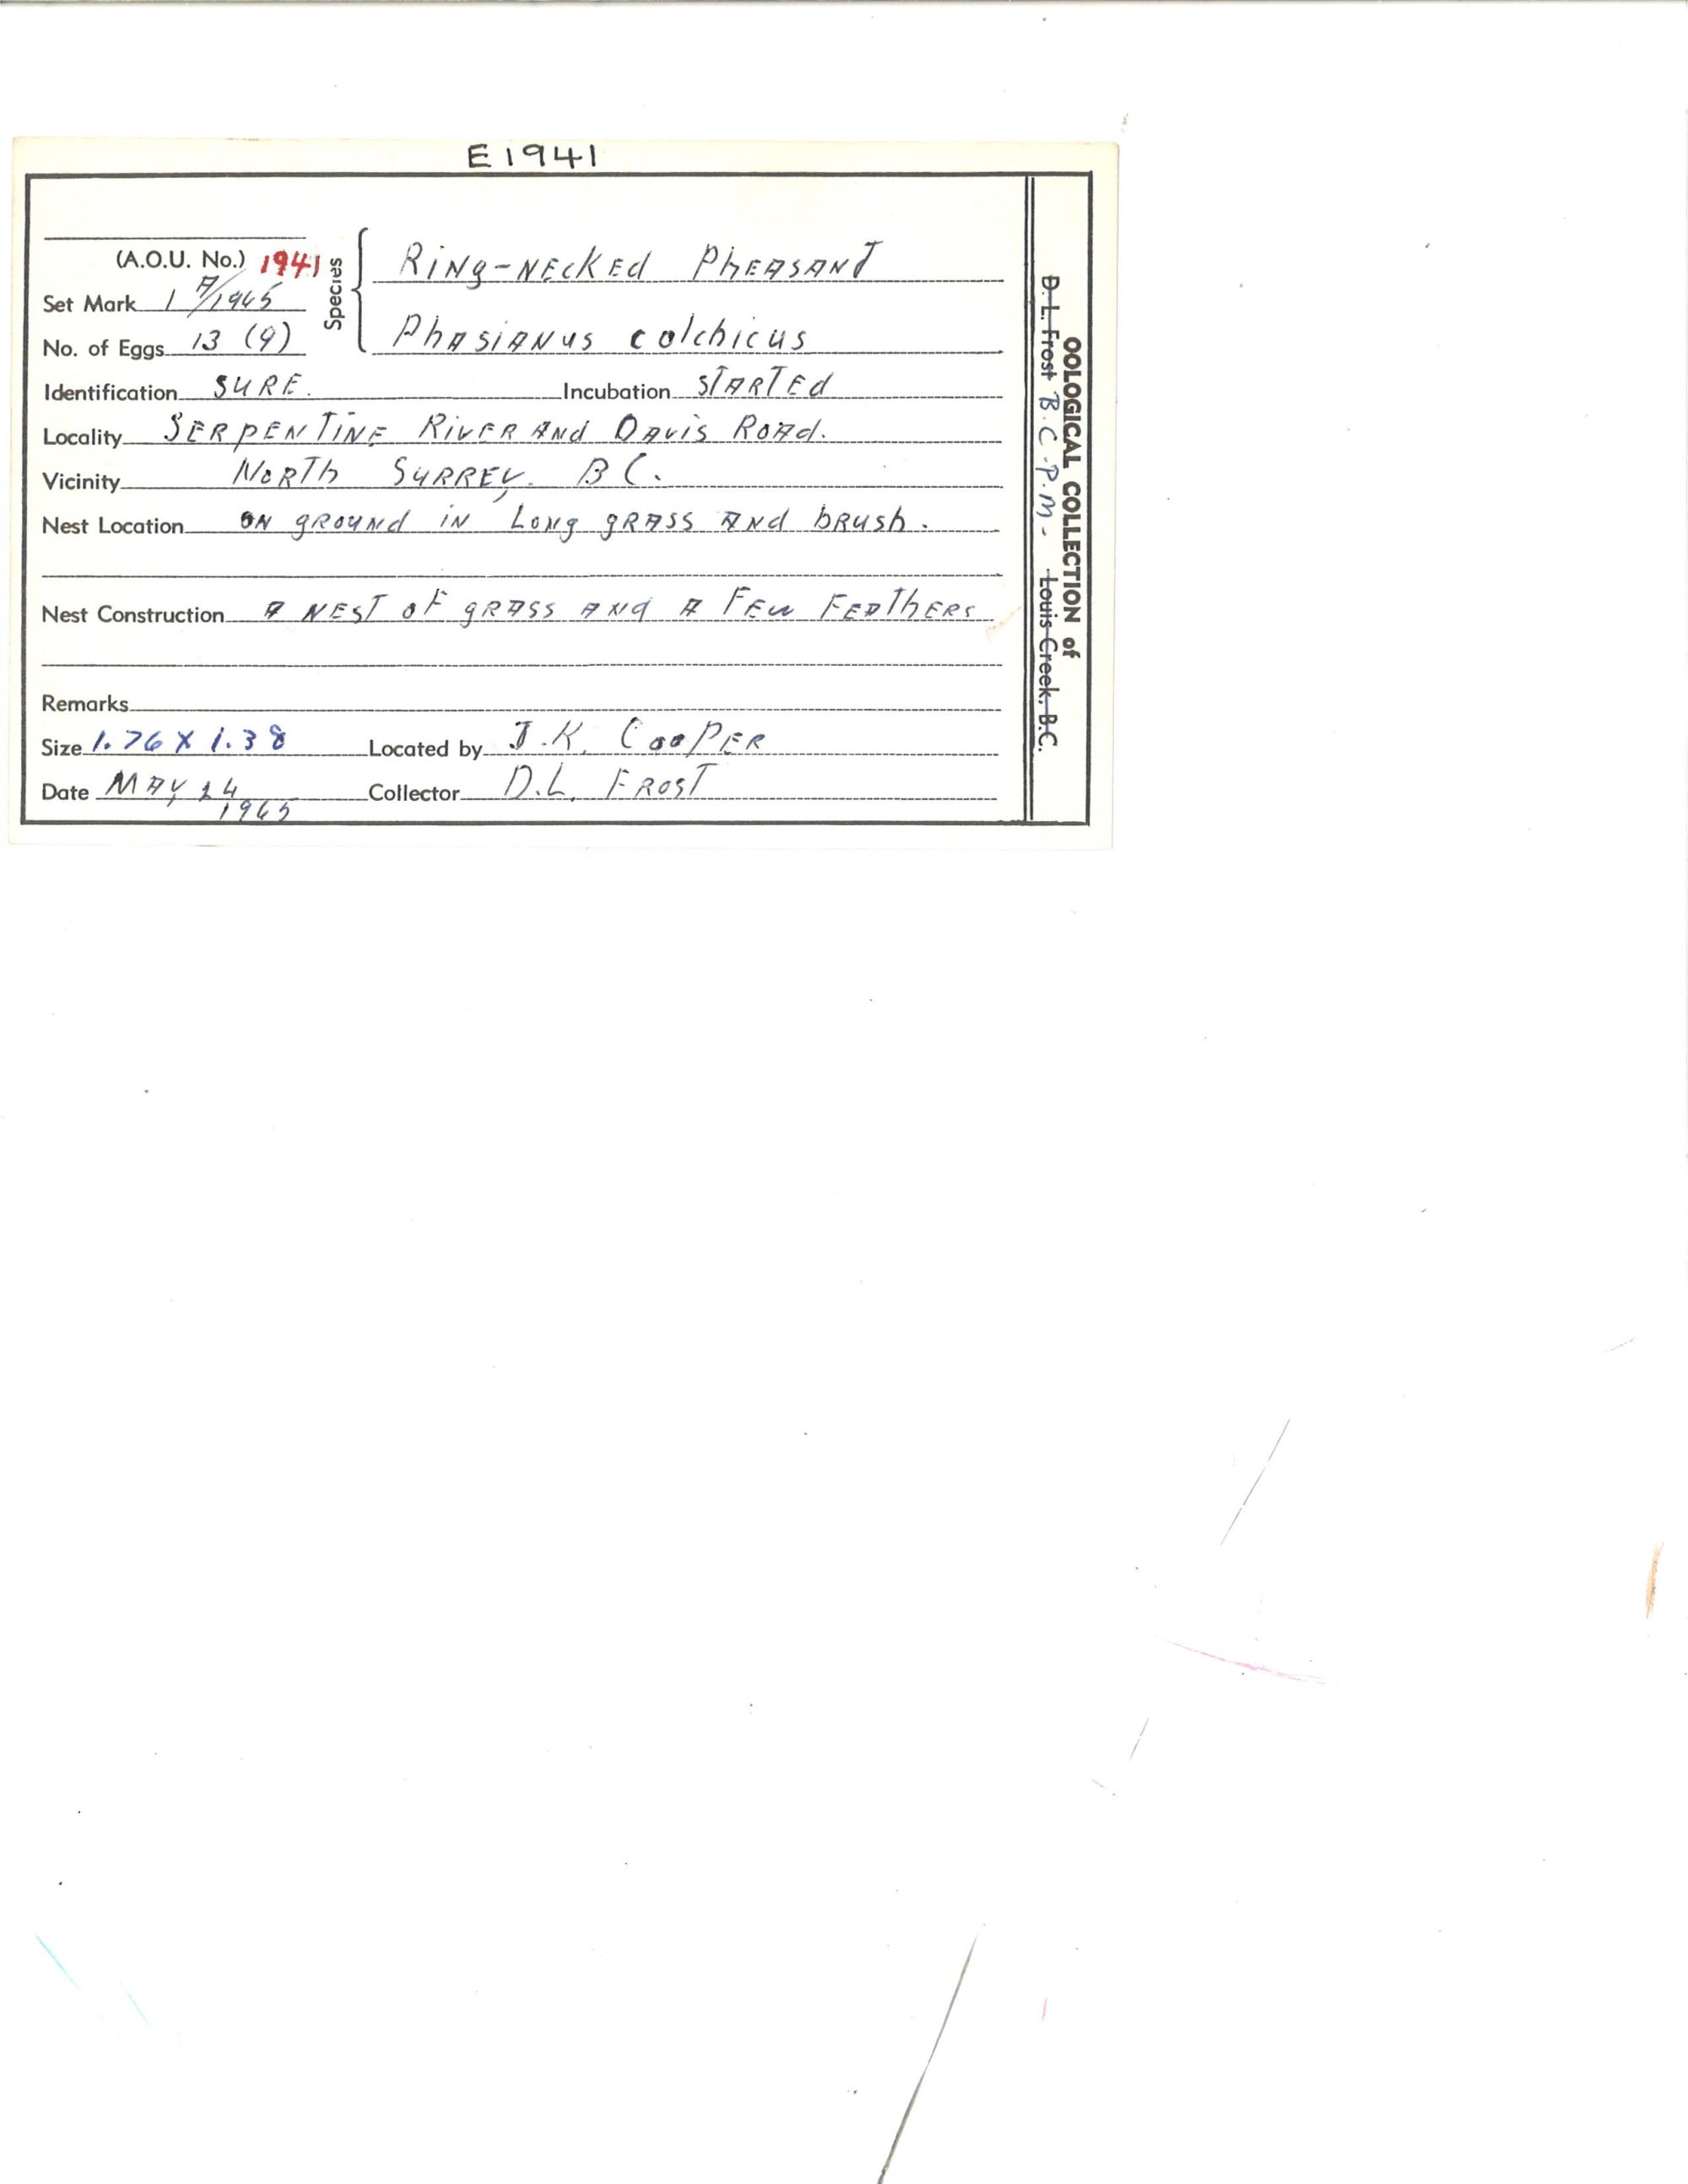 E1941
(A.O.U. No.) 1941
Set Mark 1 A/1965
No. of Eggs 13 (9)
Species
Ring-necked Pheasant
Phasianus colchicus
Identification SURE. Incubation STARTED
Locality SERPENTINE RIVER AND DAVIS ROAD.
Vicinity NORTH SURREY. B C.
Nest Location ON GROUND IN LONG GRASS AND BRUSH.
Nest Construction A NEST OF GRASS AND A FEW FEATHERS
Remarks
Size 1.76 X 1.38 Located by J.K. COOPER
Date MAY 24 1965 Collector D.L. FROST
OOLOGICAL COLLECTION of
D. L. Frost B.C.P.M. Louis Creek, B.C.